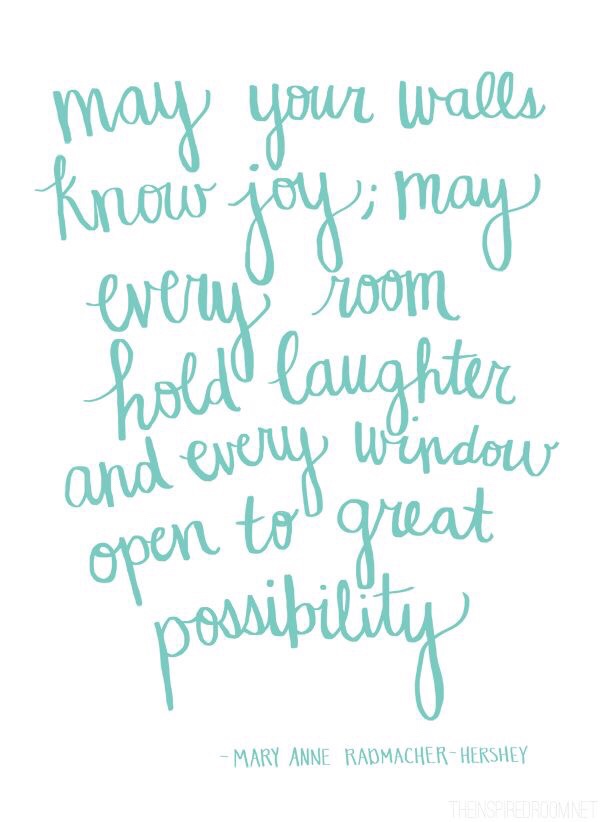 may your walls
know joy; may
every room
hold laughter
and every window
open to great
possibility
- MARY ANNE RADMACHER-HERSHEY
THEINSPIREDROOM.NET